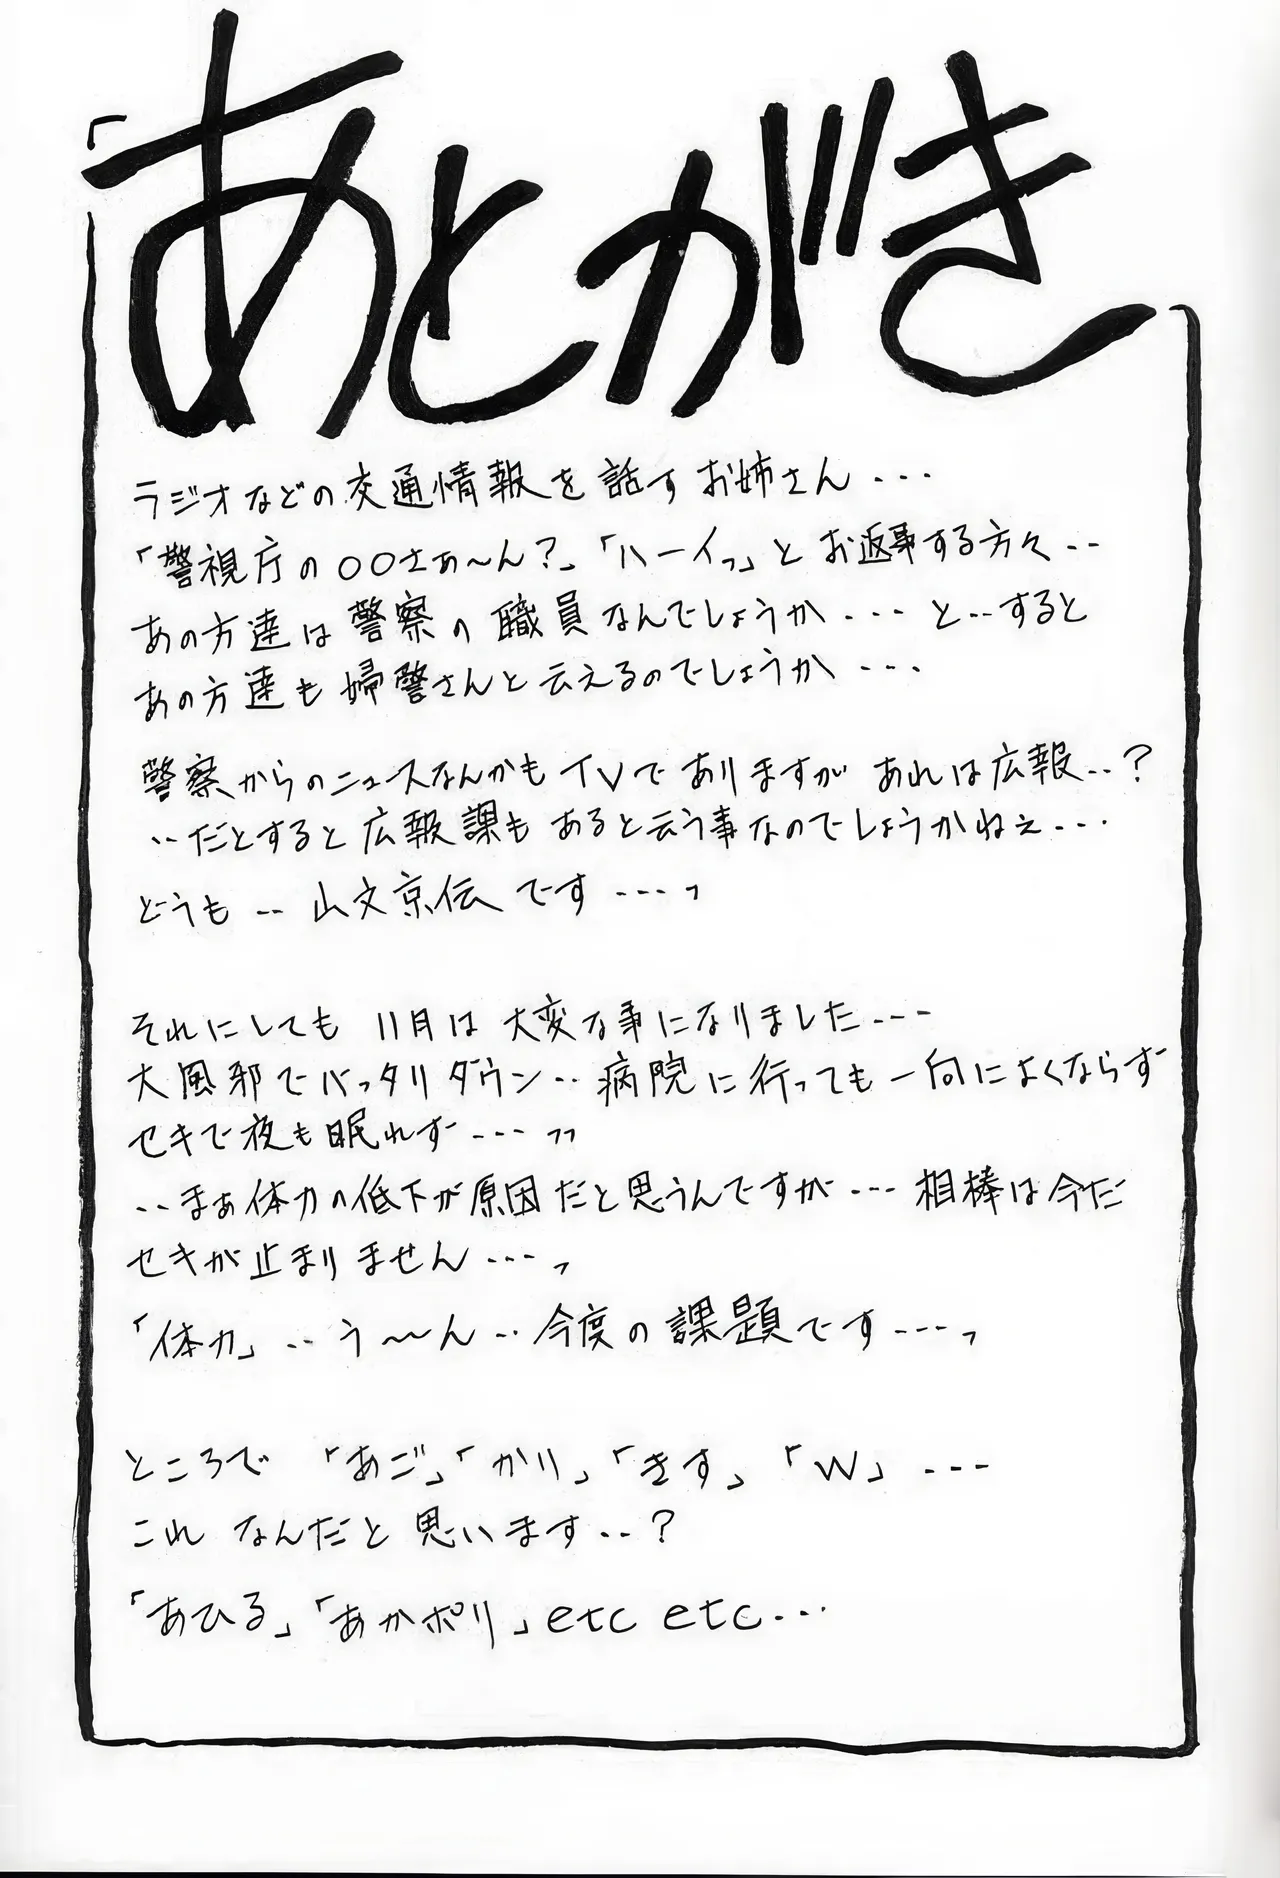 あとがき
ラジオなどの交通情報を話すお姉さん...
「警視庁の〇〇さぁ〜ん?」「ハーイっ」とお返事する方々..
あの方達は警察の職員なんでしょうか...と..すると
あの方達も婦警さんと云えるのでしょうか...
警察からのニュースなんかもTVでありますがあれは広報..?
..だとすると広報課もあると云う事なのでしょうかねぇ...
どうも..山文京伝です...っ
それにしても 11月は大変な事になりました...
大風邪でバッタリダウン..病院に行っても一向によくならず
セキで夜も眠れず...っっ
..まぁ体力の低下が原因だと思うんですが...相棒は今だ
セキが止まりません...っ
「体力」..う〜〜ん..今度の課題です...っ
ところで 「あご」「かり」「きす」「W」...
これ なんだと思います..?
「あひる」「あかポリ」etc etc...